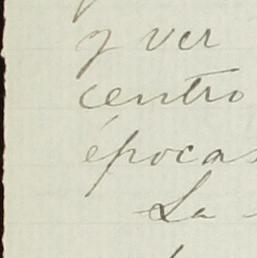 y ver
centro
épocas
La